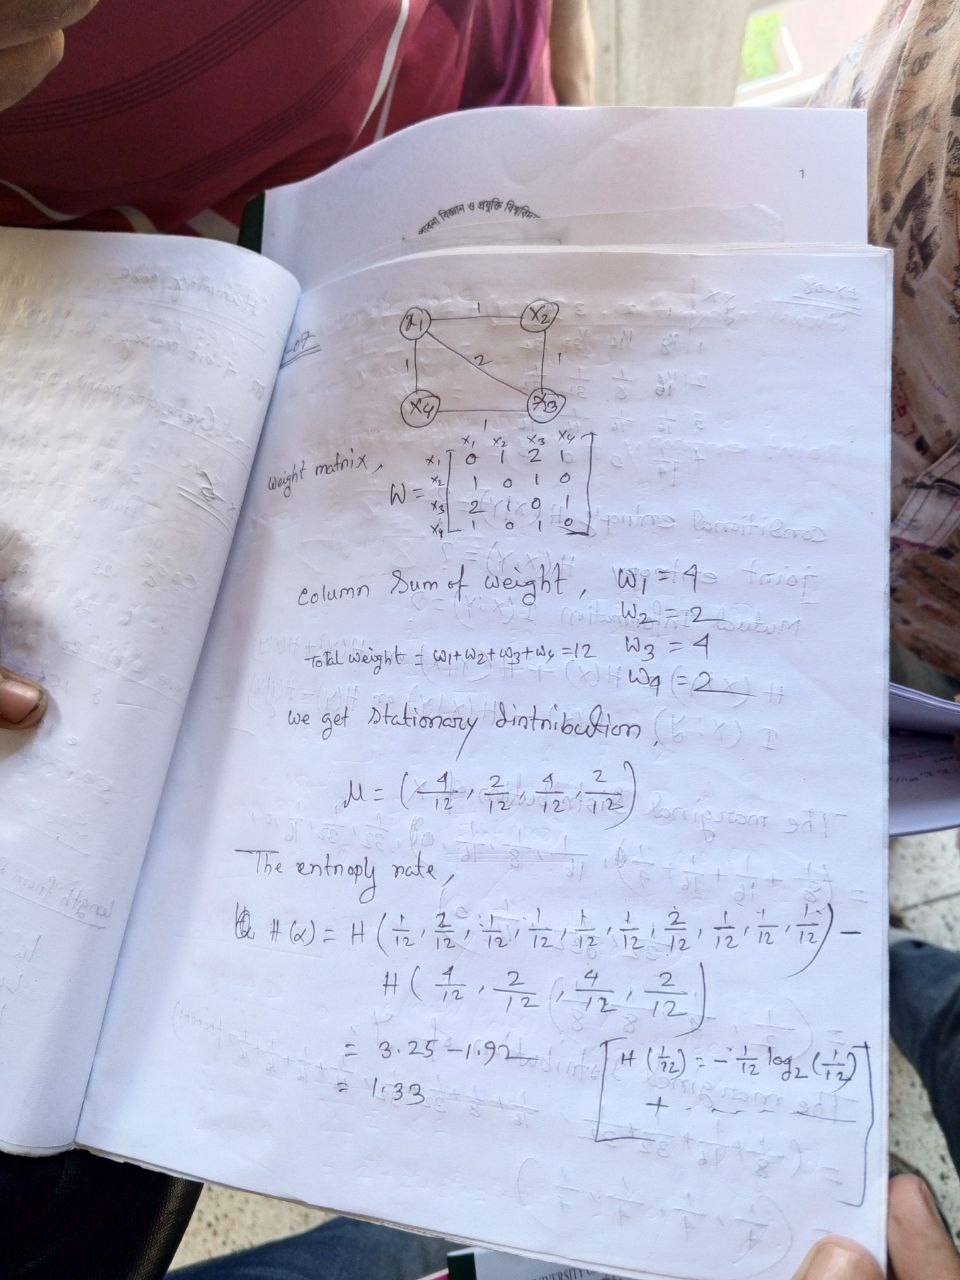 1
পাবনা বিজ্ঞান ও প্রযুক্তি বিশ্ববিদ্যা
-07
x1 1 x2
1 2 1
x4 1 x3
x1 x2 x3 x4
weight matrix, W =
x1 0 1 2 1
x2 1 0 1 0
x3 2 1 0 1
x4 1 0 1 0
column sum of weight, W1 = 4
W2 = 2
W3 = 4
Total weight = W1+W2+W3+W4 = 12
W4 = 2
we get stationary distribution,
μ = (4/12, 2/12, 4/12, 2/12)
The entropy rate,
H(x) = H(1/12, 2/12, 1/12, 1/12, 1/12, 1/12, 2/12, 1/12, 1/12, 1/12) -
H(4/12, 2/12, 4/12, 2/12)
= 3.25 - 1.92
= 1.33
[H(1/12) = -1/12 log2(1/12)
+ - - - - -]